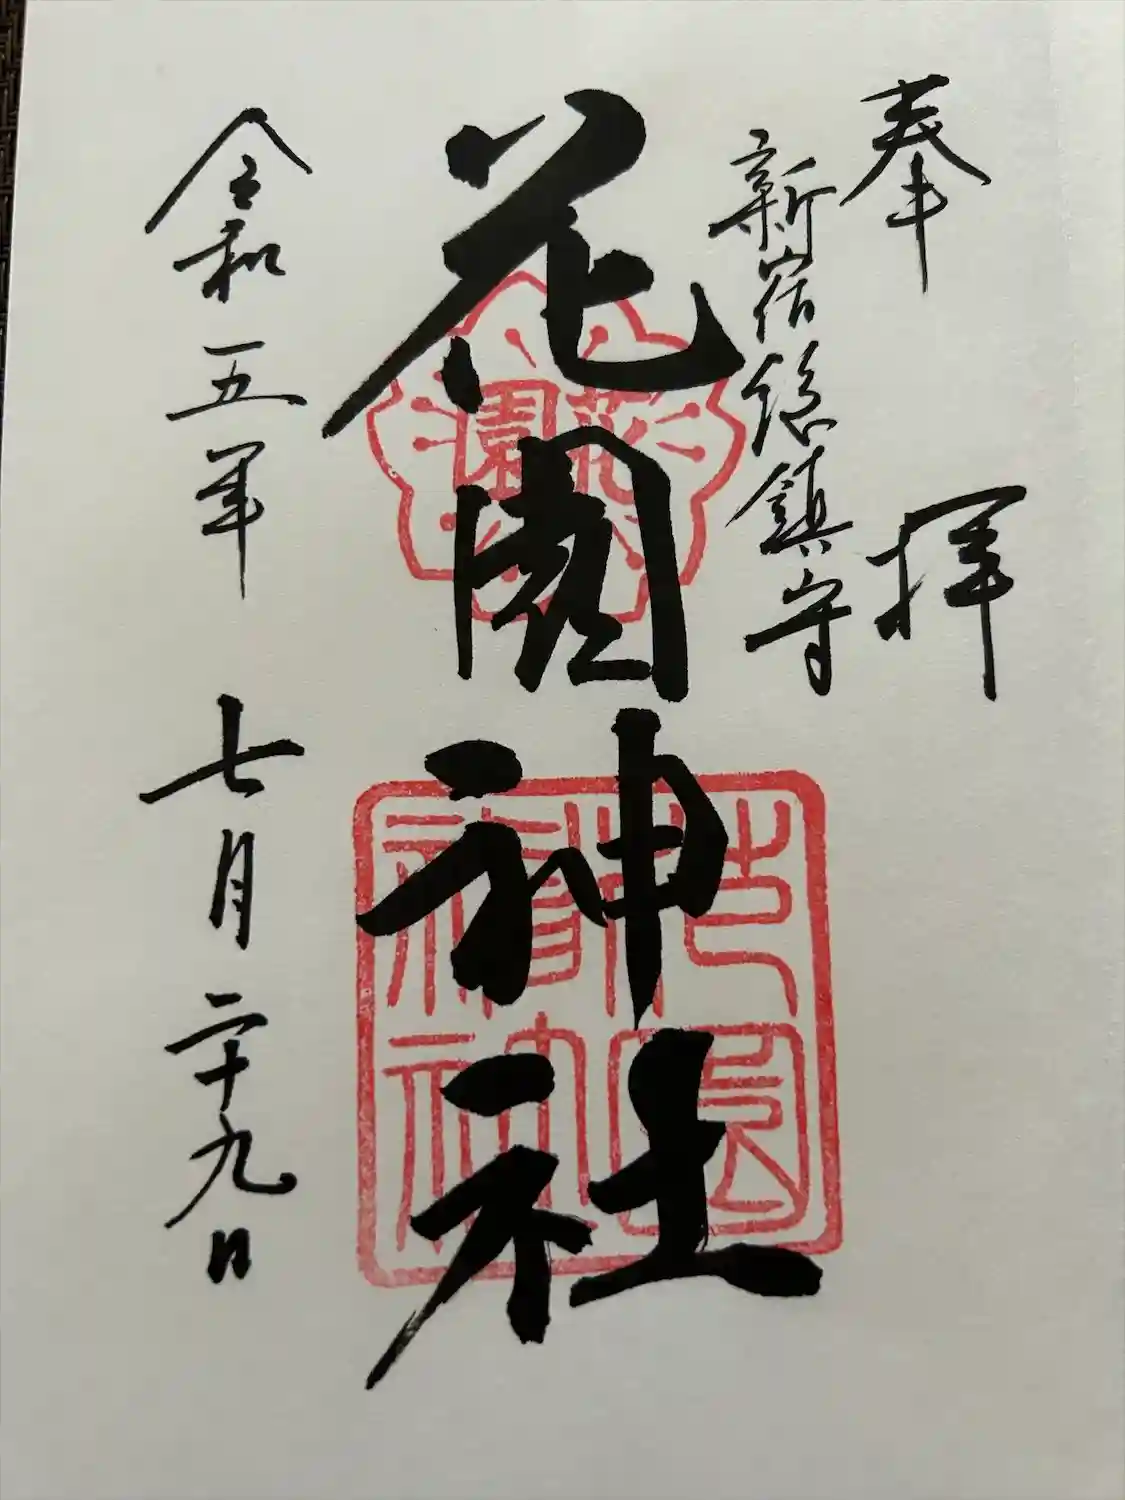 奉拝
新宿総鎮守
花園神社
花園
令和五年七月二十九日